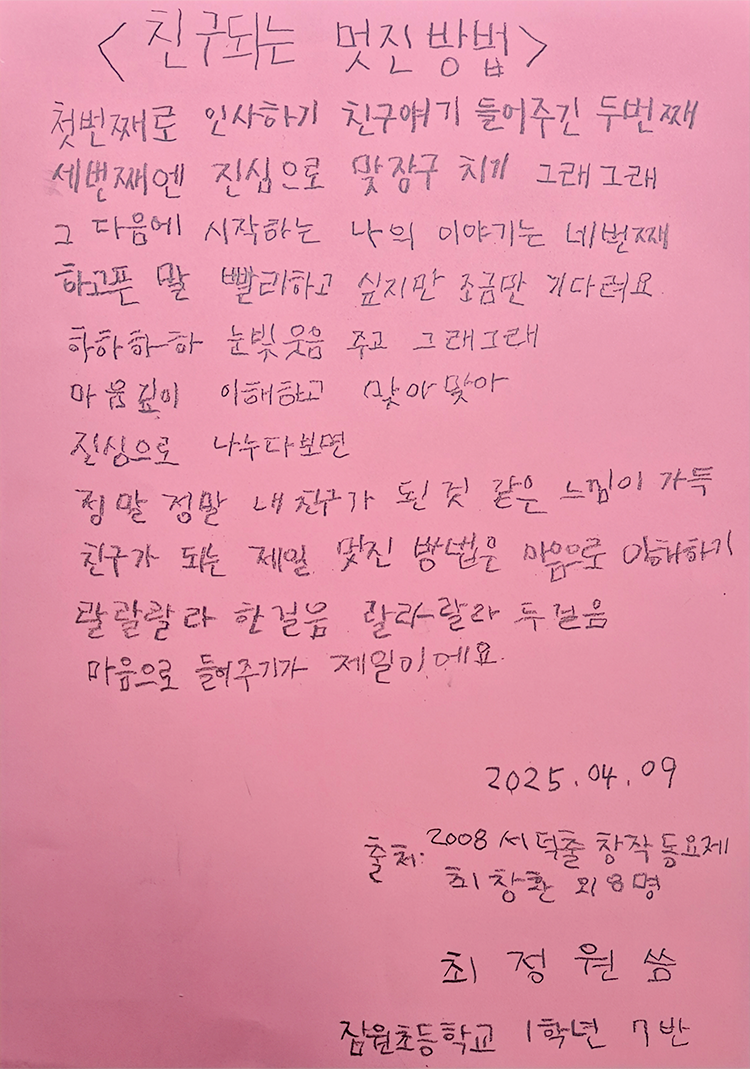 <친구되는 멋진방법>
첫번째로 인사하기 친구얘기 들어주긴 두번째
세번째엔 진심으로 맞장구 치기 그래그래
그 다음에 시작하는 나의 이야기는 네번째
하고픈 말 빨리하고 싶지만 조금만 기다려요
하하하하 눈빛웃음 주고 그래그래
마음깊이 이해하고 맞아맞아
진심으로 나누다보면
정말 정말 내 친구가 된것 같은 느낌이 가득
친구가 되는 제일 멋진 방법은 마음으로 이해하기
랄랄랄라 한걸음 랄라랄라 두걸음
마음으로 들어주기가 제일이에요
2025.04.09
출처: 2008 서덕출 창작동요제
최창환 외8명
최정원 씀
잠원초등학교 1학년 7반